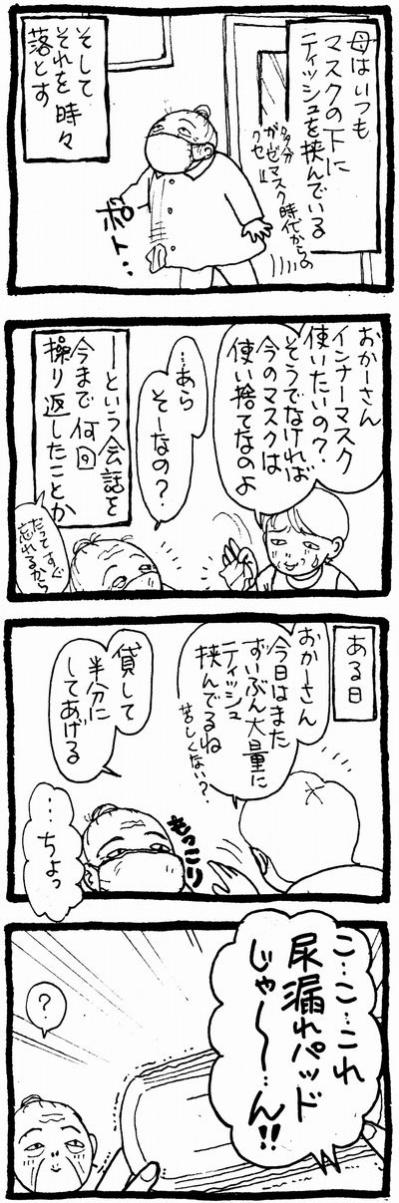 母はいつも
マスクの下に
ティッシュを挟んでいる
多分
ガーゼマスク時代からの
クセ
そして
それを時々
落とす
ポト・・
おかーさん
インナーマスク
使いたいの?
そうでなければ
今のマスクは
使い捨てなのよ
…あら
そーなの?
ーという会話を
今まで何回
操り返したことか
だってすぐ
忘れるから
ある日
おかーさん
今日はまた
ずいぶん大量に
ティッシュ
挟んでるね
苦しくない?
貸して
半分に
してあげる
もっこり
…ちょっ
こ…こ…これ
尿漏れパッド
じゃ〜〜…ん!!
?